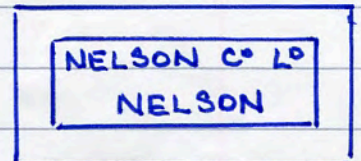 NELSON Cº Lº
NELSON